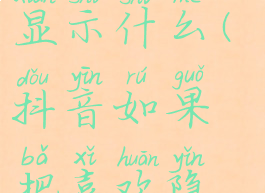 显示什么(
dǒu yīn rú guǒ
抖音如果
bǎ xǐ huān yǐn
把喜欢隐